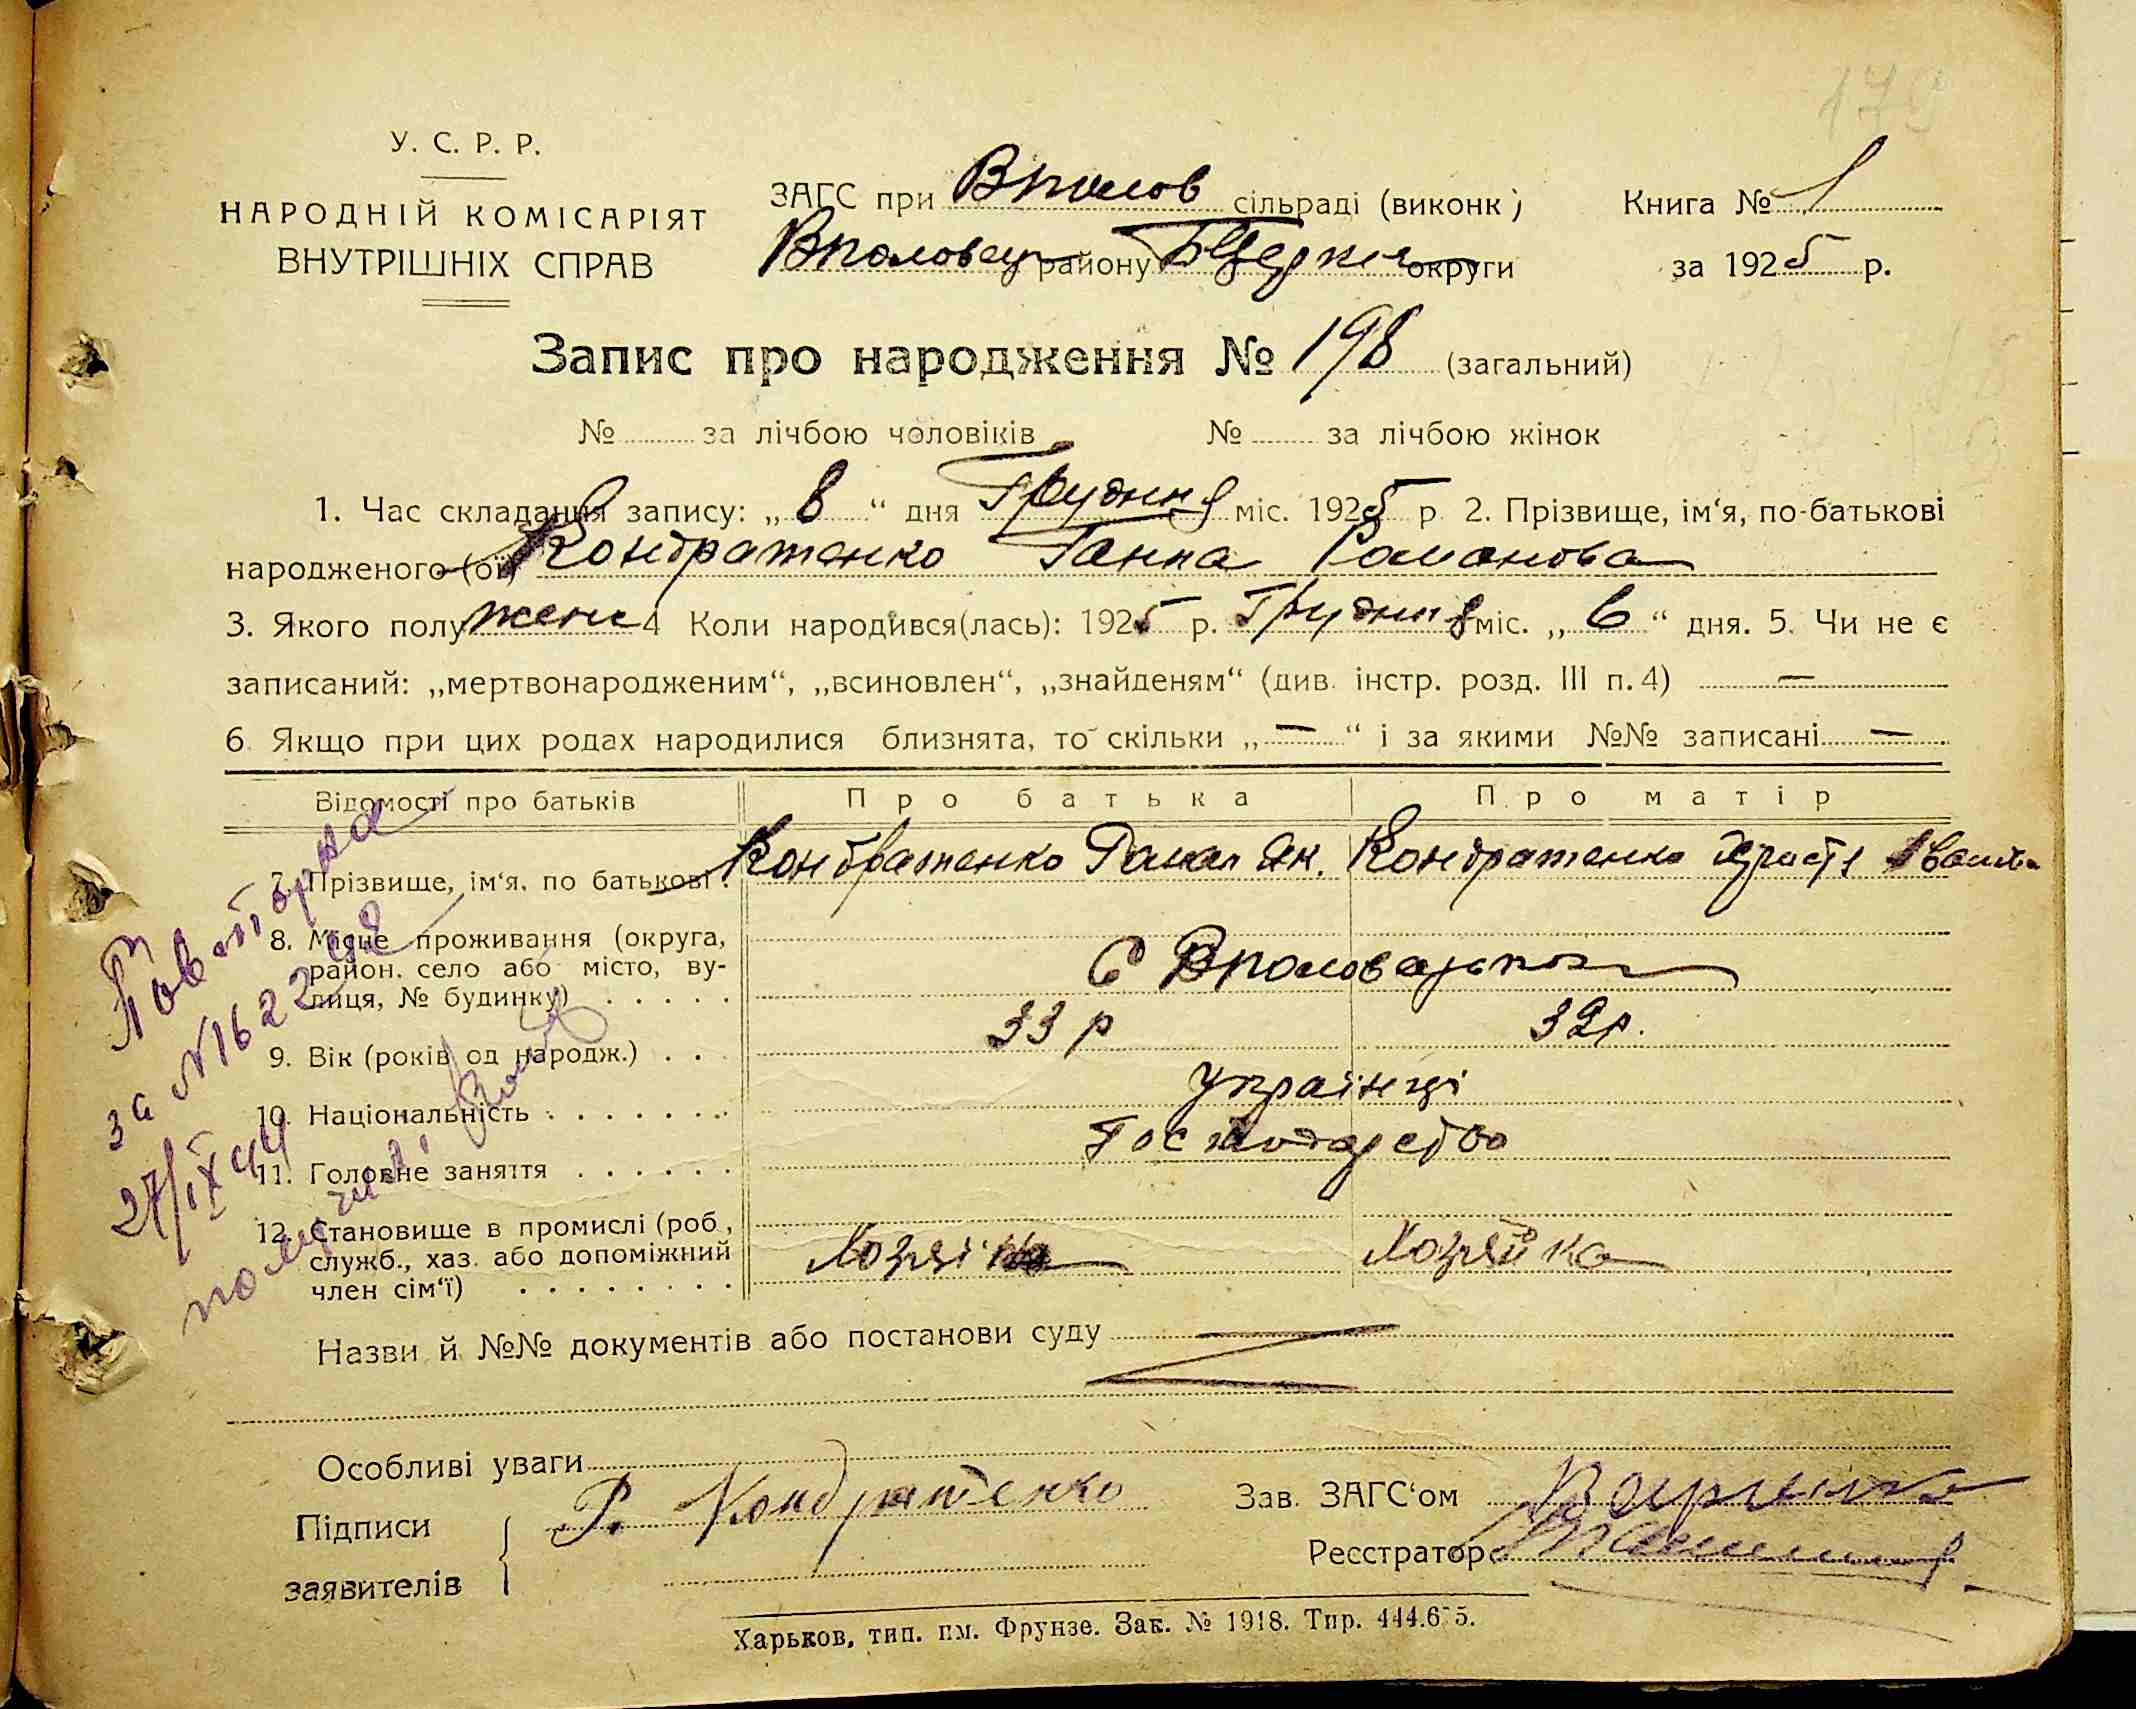 179
У. С. Р. Р.
НАРОДНІЙ КОМІСАРІЯТ
ВНУТРІШНІХ СПРАВ
ЗАГС при Вполов сільраді (виконк)
Вполовец району БЦерків округи
Книга № 1
за 1925 р.
Запис про народження № 198 (загальний)
№ за лічбою чоловіків № за лічбою жінок
1. Час складання запису: „8“ дня Грудня міс. 1925 р 2. Прізвище, ім‘я, по-батькові
народженого (ої) Кондратенко Ганна Романова
3. Якого полу жен 4 Коли народився(лась): 1925 р. Грудня міс. „6“ дня. 5. Чи не є
записаний: „мертвонародженим“, „всиновлен“, „знайденям“ (див. інстр. розд. III п. 4) —
6. Якщо при цих родах народилися близнята, то скільки „—“ і за якими №№ записані —
Відомості про батьків Про батька Про матір
7. Прізвище, ім‘я, по батькові. Кондратенко Роман Як. Кондратенко Іванов
8. Місце проживання (округа,
район, село або місто, ву-
лиця, № будинку) . . . . . С
9. Вік (років од народж.) . . . 33 р 32 р.
10. Національність . . . . . . . українці
11. Головне заняття . . . . . . Господарство
12. Становище в промислі (роб,
служб., хаз. або допоміжний
член сім‘ї) . . . . . . . . Хозяїн Хозяйка
Назви й №№ документів або постанови суду
Особливі уваги
Підписи
заявителів
Р. Кондратенко
Зав. ЗАГС‘ом
Реєстратор
Харьков, тип. им. Фрунзе. Зак. № 1918. Тир. 444.675.
Повторна
за №162242
27/IX 44